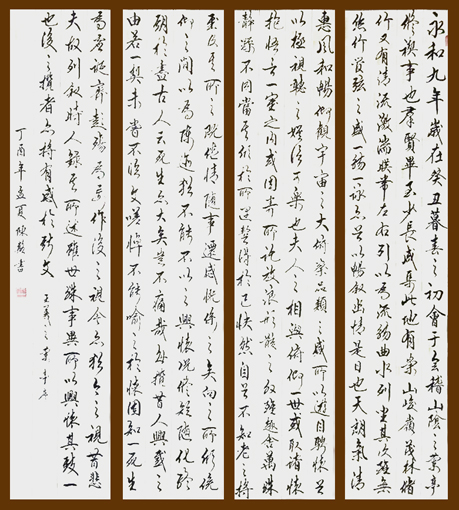 永和九年歲在癸丑暮春之初會于會稽山陰之蘭亭
脩稧事也羣賢畢至少長咸集此地有崇山峻領茂林脩
竹又有清流激湍暎帶左右引以為流觴曲水列坐其次雖無
絲竹管弦之盛一觴一詠亦足以暢敘幽情是日也天朗氣清
惠風和暢仰觀宇宙之大俯察品類之盛所以遊目騁懷足
以極視聽之娛信可樂也夫人之相與俯仰一世或取諸懷
抱悟言一室之內或因寄所託放浪形骸之外雖趣舍萬殊
靜躁不同當其欣於所遇暫得於己快然自足不知老之將
至及其所之既惓情隨事遷感慨係之矣向之所欣俛
仰之閒以為陳迹猶不能不以之興懷況脩短隨化終
期於盡古人云死生亦大矣豈不痛哉每攬昔人興感之
由若合一契未嘗不臨文嗟悼不能喻之於懷固知一死生
為虛誕齊彭殤為妄作後之視今亦猶今之視昔悲
夫故列敘時人錄其所述雖世殊事異所以興懷其致一
也後之攬者亦將有感於斯文 王羲之蘭亭序
丁酉年孟夏陳書